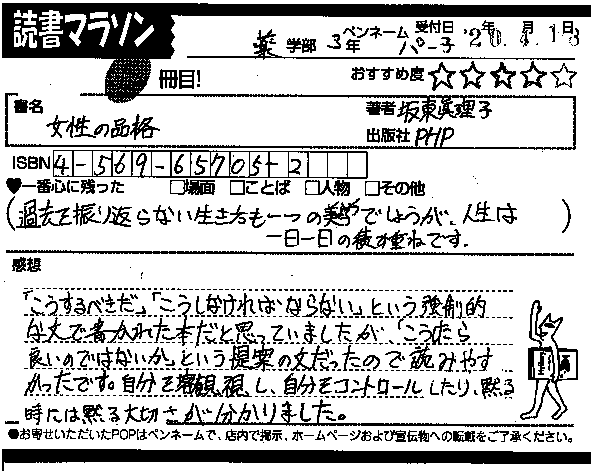 読書マラソン
冊目!
薬 学部 3年 ペンネーム パー子 受付日 '20.4.13
おすすめ度 ☆☆☆☆☆
書名 女性の品格
著者 坂東眞理子
出版社 PHP
ISBN 4-569-65705-2
♥一番心に残った □場面 □ことば □人物 □その他
(過去を振り返らない生き方も一つの美学でしょうが、人生は
一日一日の積み重ねです。)
感想
「こうするべきだ」「こうしなければならない」という強制的
な文で書かれた本だと思っていましたが、「こうしたら
良いのではないか」という提案の文だったので読みやす
かったです。自分を客観視し、自分をコントロールしたり、黙る
時には黙る大切さが分かりました。
●お寄せいただいたPOPはペンネームで、店内で掲示、ホームページおよび宣伝物への転載をご了承ください。